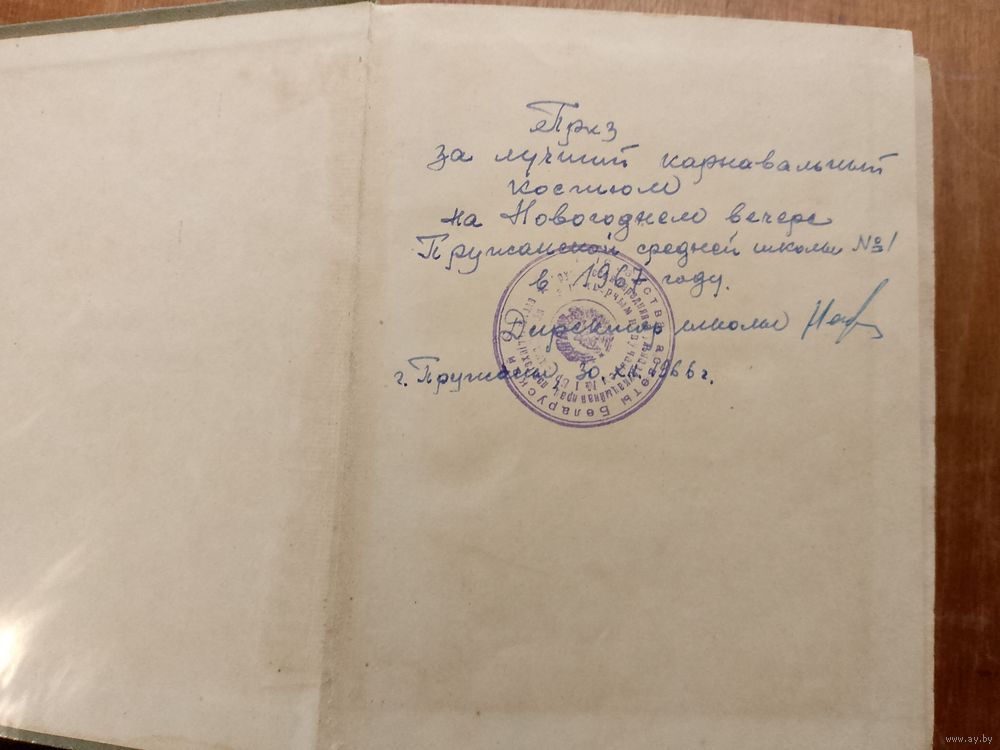 Приз
за лучший карнавальный
костюм
на Новогоднем вечере
Пружанской средней школы №1
в 1967 году.
Директор школы
г. Пружаны 30.XII.1966 г.
асветы Беларускай
www.ay.by